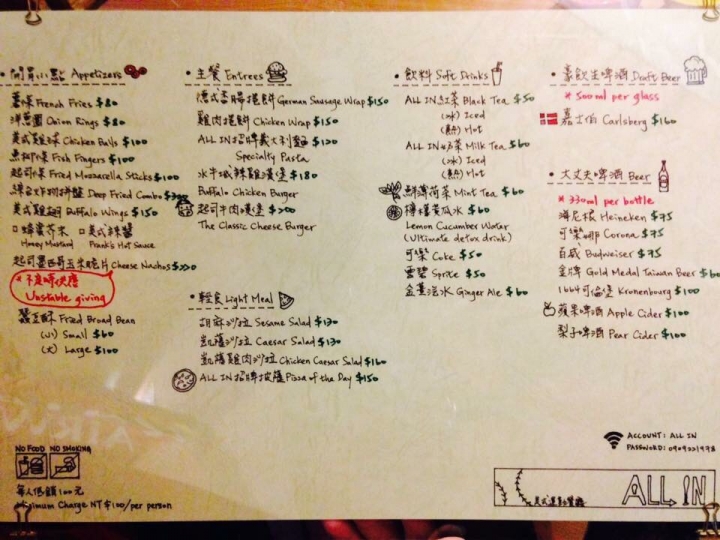 開胃小點 Appetizers
薯條 French Fries $80
洋蔥圈 Onion Rings $80
美式雞球 Chicken Balls $100
魚柳條 Fish Fingers $100
起司條 Fried Mozzarella Sticks $100
綜合炸物拼盤 Deep Fried Combo $300
美式雞翅 Buffalo Wings $150
□ 蜂蜜芥末 □ 美式辣醬
Honey Mustard Frank's Hot Sauce
起司墨西哥玉米脆片 Cheese Nachos $220
* 不定時供應
Unstable giving
蠶豆酥 Fried Broad Bean
(小) Small $60
(大) Large $100
NO FOOD NO SMOKING
每人低銷100元
Minimum Charge NT$100/per person
主餐 Entrees
德式香腸捲餅 German Sausage Wrap $150
雞肉捲餅 Chicken Wrap $150
ALL IN招牌義大利麵 $120
Specialty Pasta
水牛城辣雞漢堡 $180
Buffalo Chicken Burger
起司牛肉漢堡 $200
The Classic Cheese Burger
輕食 Light Meal
胡麻沙拉 Sesame Salad $130
凱薩沙拉 Caesar Salad $130
凱薩雞肉沙拉 Chicken Caesar Salad $160
ALL IN招牌披薩 Pizza of the Day $150
飲料 Soft Drinks
ALL IN紅茶 Black Tea $50
(冰) Iced
(熱) Hot
ALL IN奶茶 Milk Tea $60
(冰) Iced
(熱) Hot
鮮薄荷茶 Mint Tea $60
檸檬黃瓜水 $60
Lemon Cucumber Water
(Ultimate detox drink)
可樂 Coke $50
雪碧 Sprite $50
薑汁汽水 Ginger Ale $60
豪飲生啤酒 Draft Beer
* 500ml per glass
嘉士伯 Carlsberg $160
大丈夫啤酒 Beer
* 330ml per bottle
海尼根 Heineken $75
可樂娜 Corona $75
百威 Budweiser $75
金牌 Gold Medal Taiwan Beer $60
1664可倫堡 Kronenbourg $100
蘋果啤酒 Apple Cider $100
梨子啤酒 Pear Cider $100
ACCOUNT: ALL IN
PASSWORD: 0909221978
美式運動餐廳
ALL IN